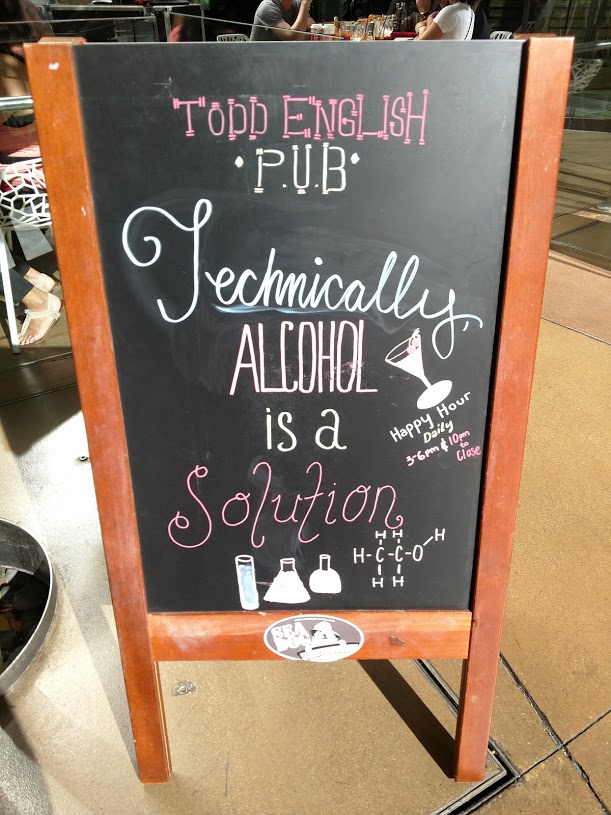 TODD ENGLISH
P.U.B
Technically,
ALCOHOL
is a
Solution
Happy Hour
Daily
3-6pm & 10pm
to
Close
H H
H-C-C-O-H
H H